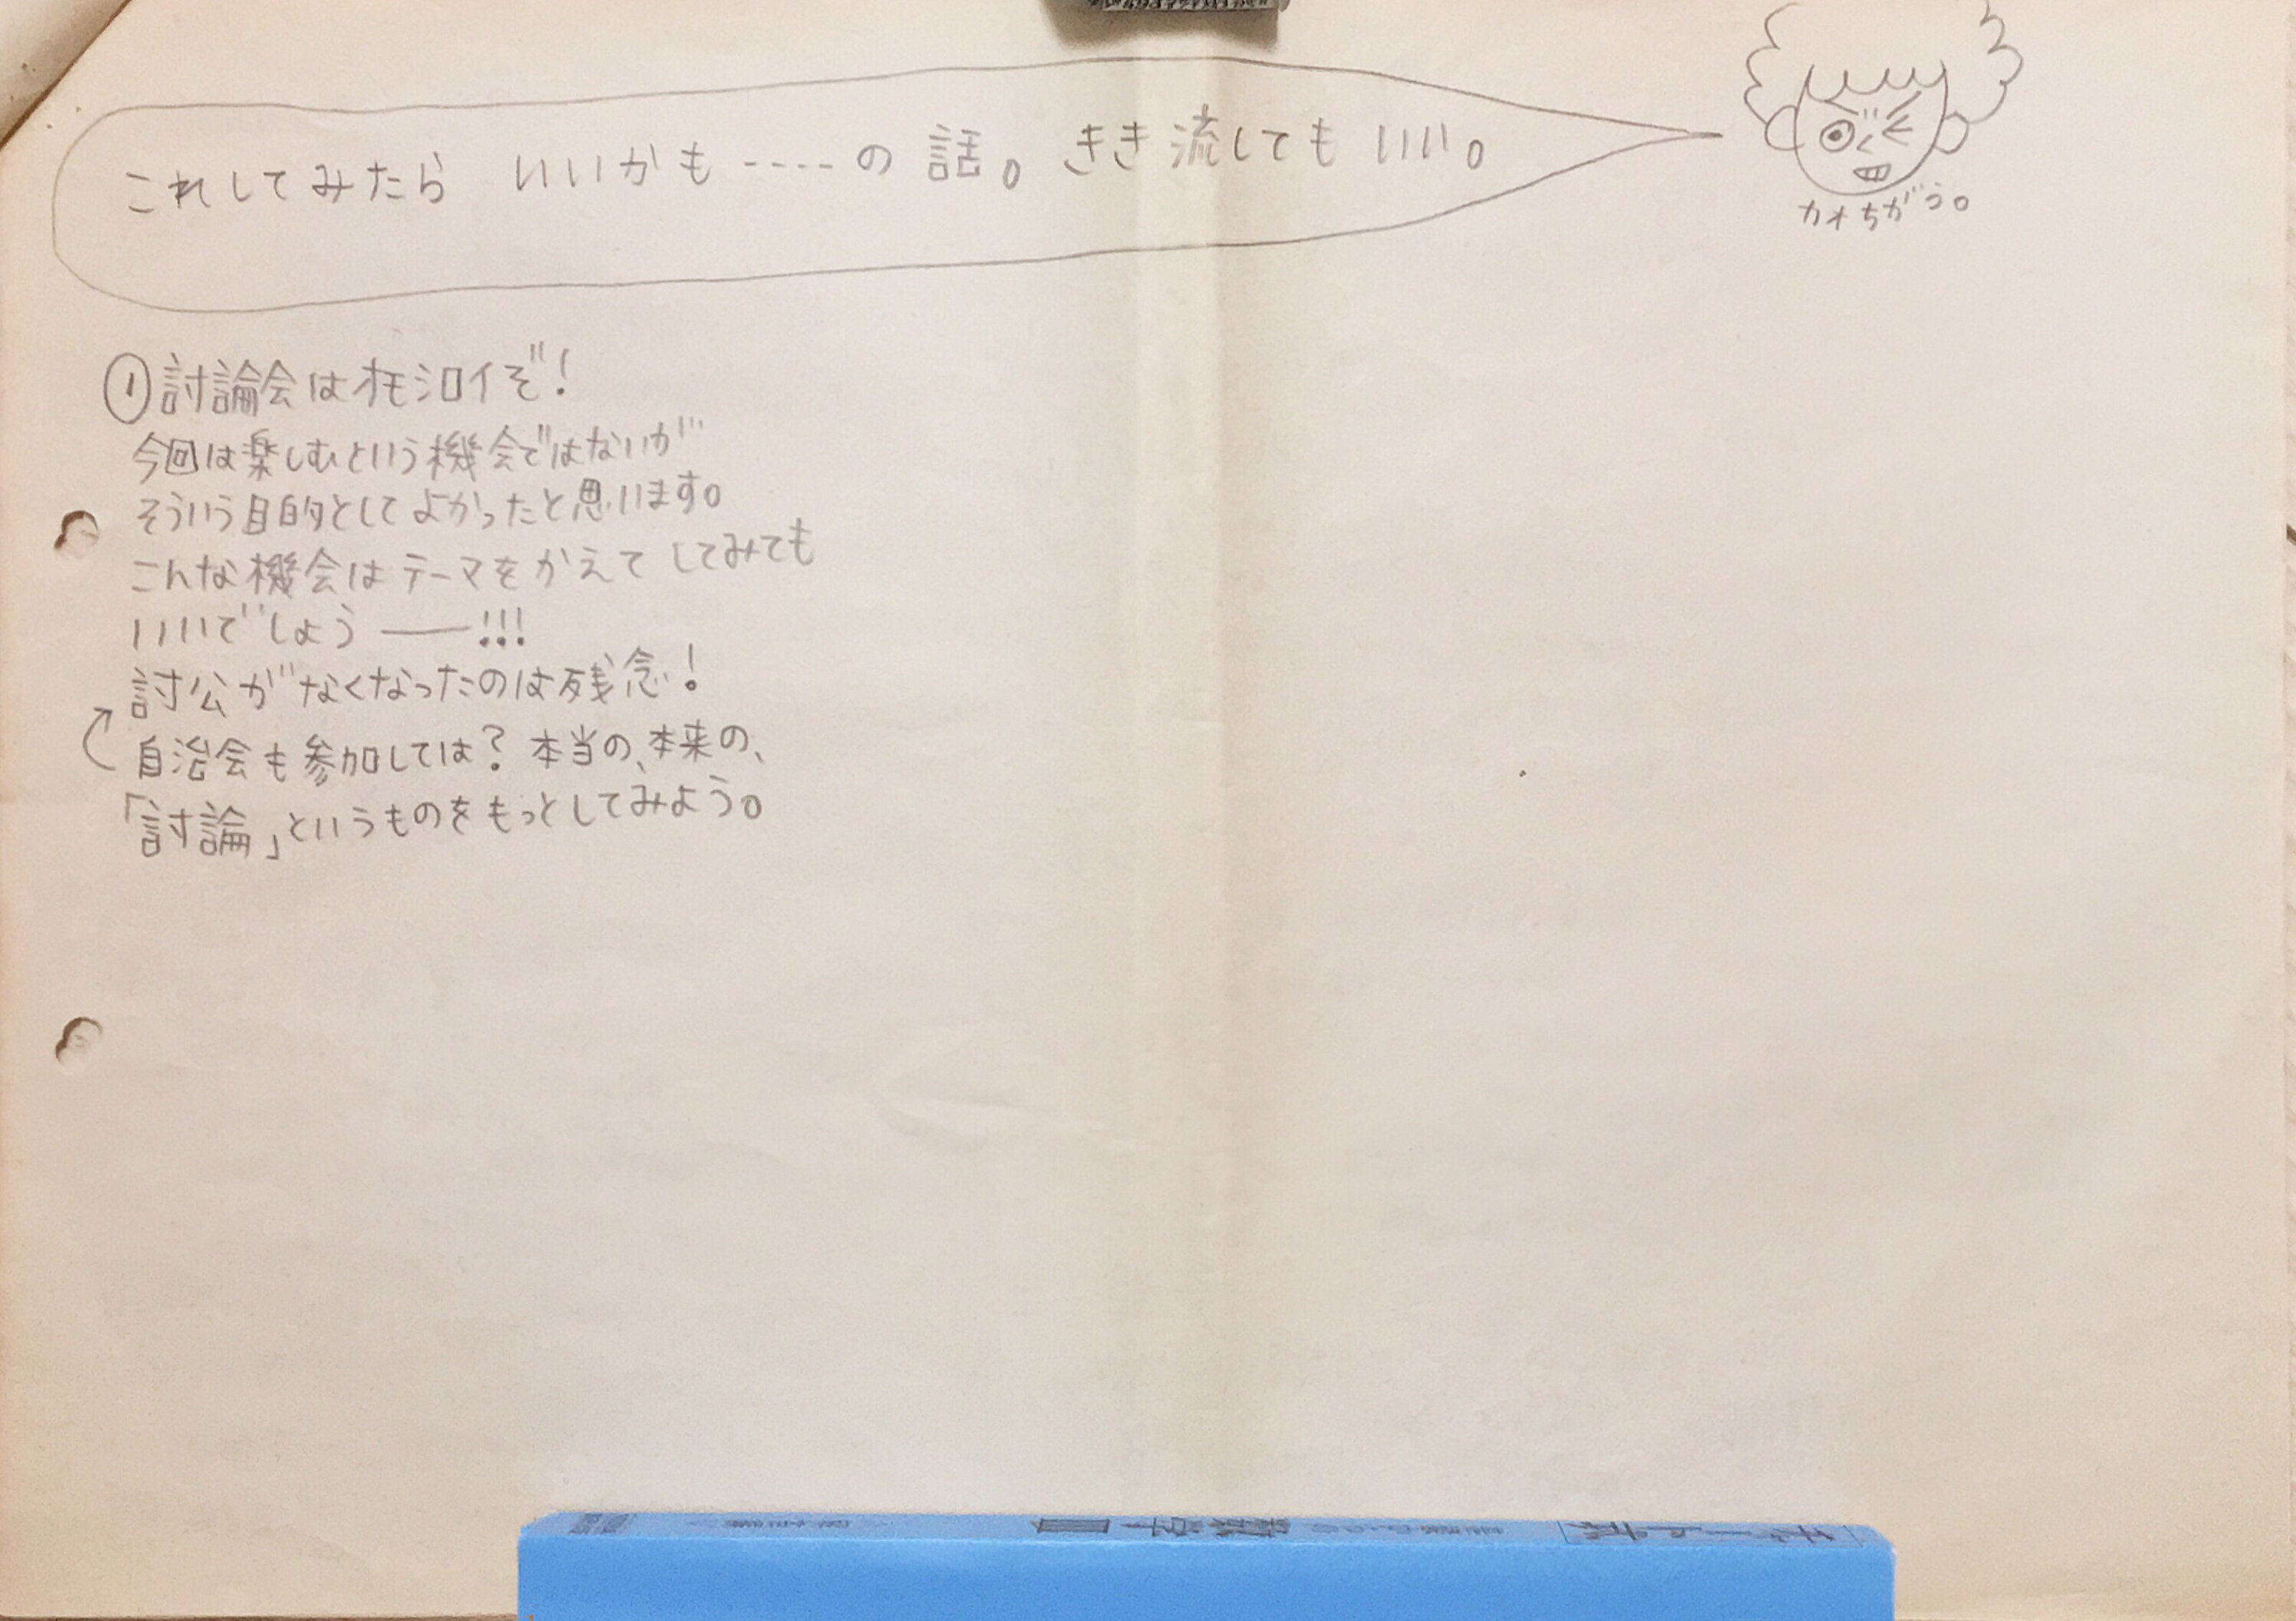 これしてみたら いいかも----の 話。きき流しても いい。
カオちがう。
①討論会はオモシロイぞ!
今回は楽しむという機会ではないが
そういう目的としてよかったと思います。
こんな機会はテーマをかえて してみても
いいでしょう――!!!
討公がなくなったのは残念!
自治会も参加しては?本当の、本来の、
「討論」というものをもっとしてみよう。
チャート式
数学